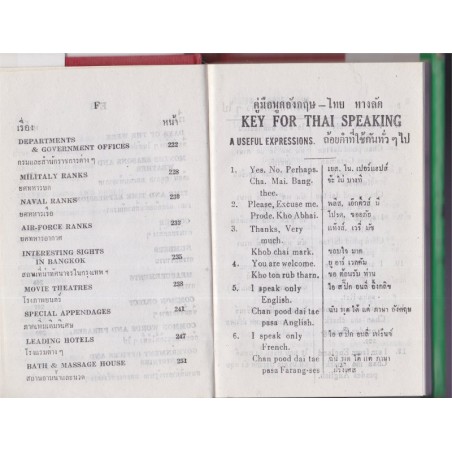 F
เรื่อง หน้า
DEPARTMENTS
& GOVERNMENT OFFICES 222
กรมและสำนักราชการต่าง ๆ
MILITALY RANKS 228
ยศทหารบก
NAVAL RANKS 230
ยศทหารเรือ
AIR-FORCE RANKS 212
ยศทหารอากาศ
INTERESTING SIGHTS
IN BANGKOK
สถานที่น่าทัศนาจรในกรุงเทพ ฯ
MOVIE THEATRES
โรงภาพยนตร์
SPECIAL APPENDAGES 241
ภาคเพิ่มเติมพิเศษ
LEADING HOTELS 247
โรงแรมต่าง ๆ
BATH & MASSAGE HOUSE 251
สถานอาบน้ำและนวด
คู่มือพูดอังกฤษ – ไทย ทางลัด
KEY FOR THAI SPEAKING
A USEFUL EXPRESSIONS. ถ้อยคำที่ใช้กันทั่ว ๆ ไป
1. Yes, No, Perhaps. เยส, โน, เปอร์แฮปส์
Cha. Mai. Bang- ใช่ ไม่ บางที
thee.
2. Please, Excuse me. พลีส, เอ็กคิ้วส์ มี
Prode. Kho Abhai. โปรด, ขออภัย
3. Thanks, Very แท้งส์, เวรี่ มัช
much.
Khob chai mark. ขอบใจ มาก
4. You are welcome. ยู อาร์ เวลคัม
Kho ton rub tharn. ขอ ต้อนรับ ท่าน
5. I speak only ไอ สปีก อนลี่ อิงกลิช
English.
Chan pood dai tae ฉัน พูด ได้ แต่ ภาษา อังกฤษ
pasa Anglish.
6. I speak only ไอ สปีก อนลี่ เฟร็นช์
French.
Chan pood dai tae ฉัน พูด ได้ แต่ ภาษา
pasa Farang-ses ฝรั่งเศส